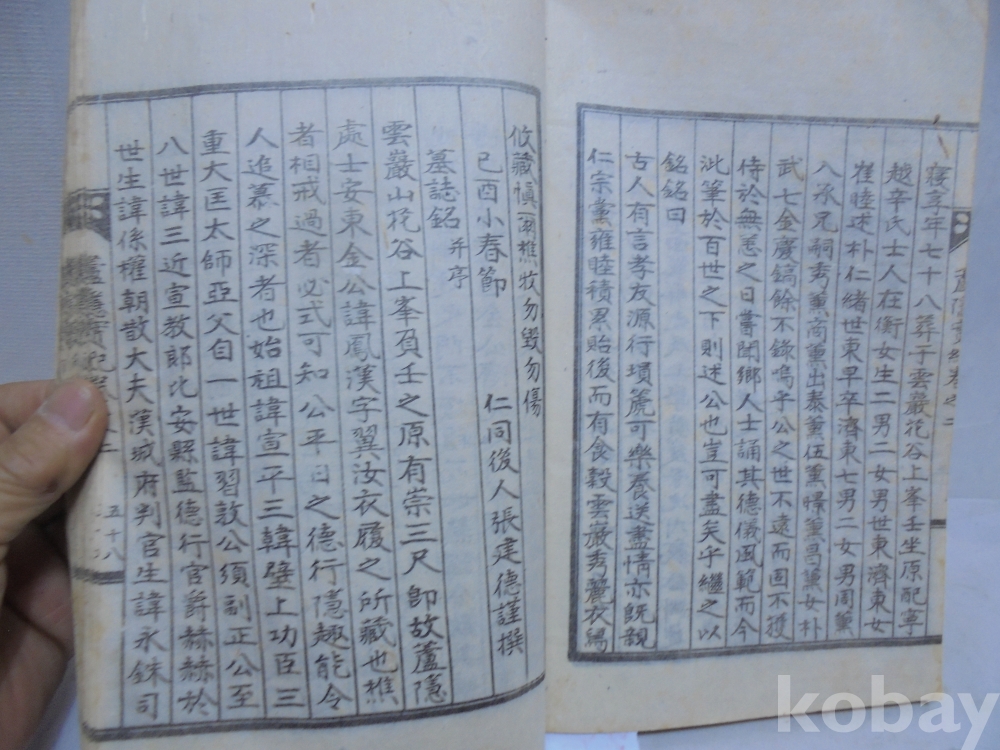 寢享年七十八葬于雲巖花谷上峯壬坐原配寧
越辛氏士人在衡女生二男二女男世東濟東女
崔睦述朴仁緖世東早卒濟東七男二女男周薰
入承兄嗣秀薰商薰出泰薰伍薰憬薰昌薰女朴
武七金慶鎬餘不錄嗚乎公之世不遠而固不獲
侍於無恙之日嘗聞鄉人士誦其德儀風範而今
泚筆於百世之下則述公也豈可盡矣乎繼之以
銘銘曰
古人有言孝友源行塤篪可樂養送盡情亦旣親
仁宗黨雍睦積累貽後而有食穀雲巖秀麗衣舄
攸藏愼爾樵牧勿毀勿傷
己酉小春節 仁同後人張建德謹撰
墓誌銘 并序
雲巖山花谷上峯負壬之原有崇三尺卽故蘆隱
處士安東金公諱鳳漢字翼汝衣履之所藏也樵
者相戒過者必式可知公平日之德行隱趣能令
人追慕之深者也始祖諱宣平三韓壁上功臣三
重大匡太師亞父自一世諱習敦公須副正公至
八世諱三近宣敎郞比安縣監德行官爵赫赫於
世生諱係權朝散大夫漢城府判官生諱永銖司
蘆隱實紀卷之二
五十八
kobay